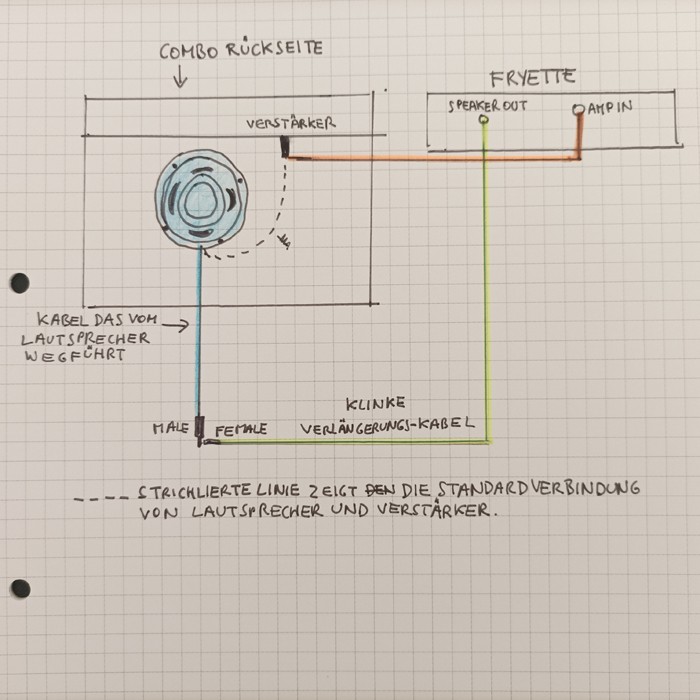 COMBO RÜCKSEITE
FRYETTE
SPEAKER OUT
AMP IN
VERSTÄRKER
KABEL DAS VOM
LAUTSPRECHER
WEGFÜHRT
KLINKE
MALE FEMALE VERLÄNGERUNGS-KABEL
---- STRICHLIERTE LINIE ZEIGT DEN DIE STANDARDVERBINDUNG
VON LAUTSPRECHER UND VERSTÄRKER.